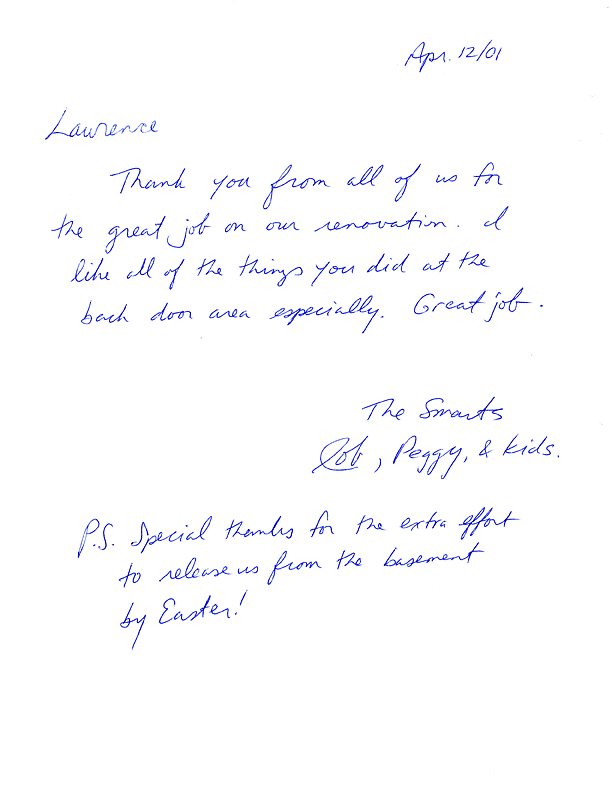 Apr. 12/01
Lawrence
Thank you from all of us for
the great job on our renovation. I
like all of the things you did at the
back door area especially. Great job.
The Smarts
, Peggy, & kids.
P.S. Special thanks for the extra effort
to release us from the basement
by Easter!